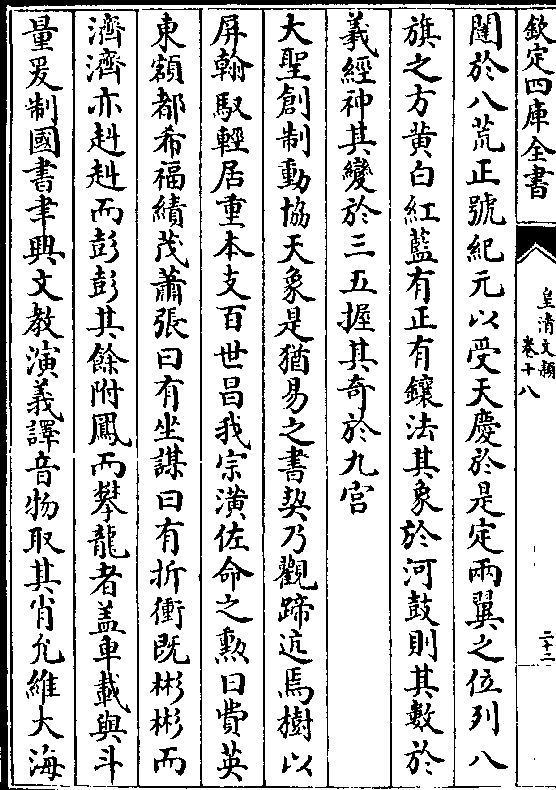 欽定四庫全書
皇清文穎
卷十八
二十二
闥於八荒正號紀元以受天慶於是定兩翼之位列八
旗之方黄白紅藍有正有鑲法其象於河鼓則其數於
羲經神其變於三五握其奇於九宫
大聖創制動協天象是猶易之書契乃觀蹄迒焉樹以
屏翰馭輕居重本支百世昌我宗潢佐命之勲曰費英
東額都希福績茂蕭張曰有坐謀曰有折衝既彬彬而
濟濟亦赳赳而彭彭其餘附鳳而攀龍者盖車載與斗
量爰制國書聿興文教演義譯音物取其肖允維大海